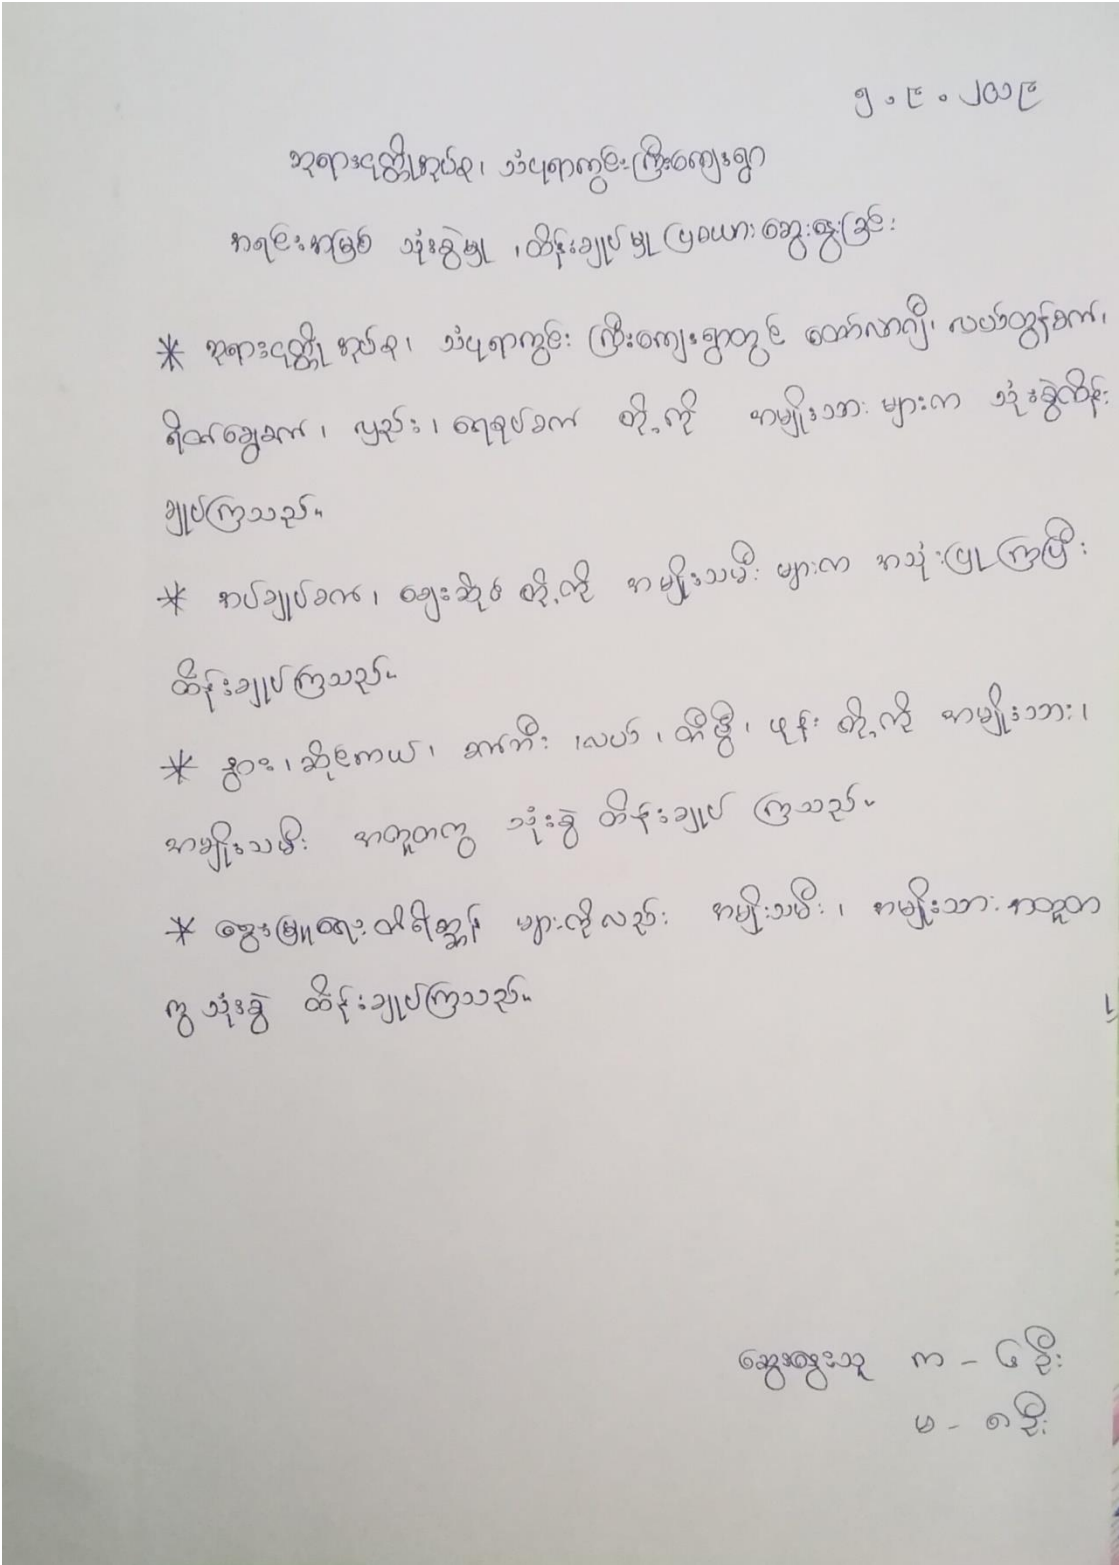 ၅.၉.၂၀၁၉
ဘုရားငုတ္တိုအုပ်စု၊ သံပုရာကွင်းကြီးကျေးရွာ
အရင်းအမြစ် သုံးစွဲမှု ၊ ထိန်းချုပ်မှု ပြဇယားဆွေးနွေးခြင်း
* ဘုရားငုတ္တို အုပ်စု၊ သံပုရာကွင်း ကြီးကျေးရွာတွင် ထော်လာဂျီ၊ လယ်ထွန်စက်၊
ရိတ်ခြွေစက်၊ လှည်း၊ ရေစုပ်စက် တို့ကို အမျိုးသား များက သုံးစွဲထိန်း
ချုပ်ကြသည်။
* အပ်ချုပ်စက်၊ ဈေးဆိုင် တို့ကို အမျိုးသမီး များက အသုံးပြုကြပြီး
ထိန်းချုပ်ကြသည်။
* နွား၊ ဆိုင်ကယ်၊ စက်ဘီး ၊လယ် ၊ တီဗွီ ၊ ဖုန်း တို့ကို အမျိုးသား၊
အမျိုးသမီး အတူတကွ သုံးစွဲ ထိန်းချုပ် ကြသည်။
* မွေးမြူရေး တိရိစ္ဆာန် များကိုလည်း အမျိုးသမီး ၊ အမျိုးသား အတူတ
ကွ သုံးစွဲ ထိန်းချုပ်ကြသည်။
ဆွေးနွေးသူ က - ၆ ဦး
မ - ၈ ဦး